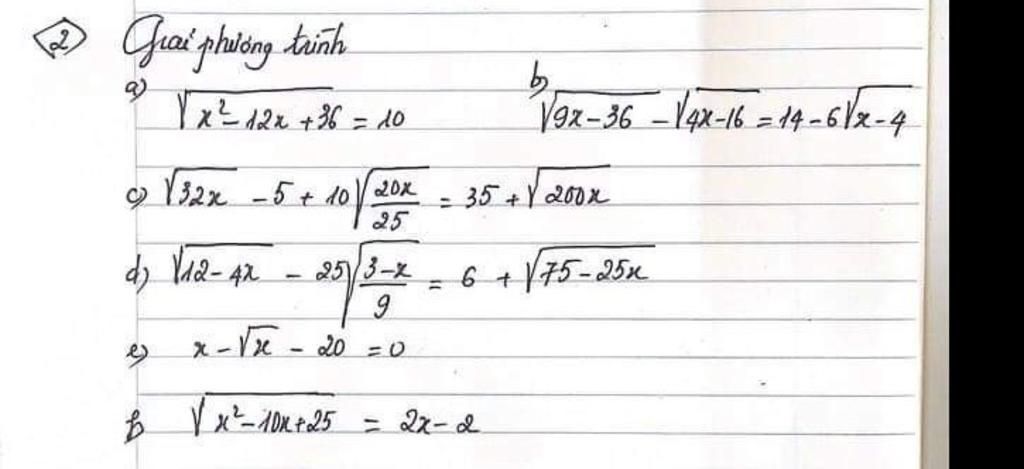 2 Giải phương trình
a) √(x² - 12x + 36) = 10
b) √(9x - 36) - √(4x - 16) = 14 - 6√(x - 4)
c) √(32x) - 5 + 10√(20x/25) = 35 + √(200x)
d) √(12 - 4x) - 25√((3 - x)/9) = 6 + √(75 - 25x)
e) x - √x - 20 = 0
f) √(x² - 10x + 25) = 2x - 2